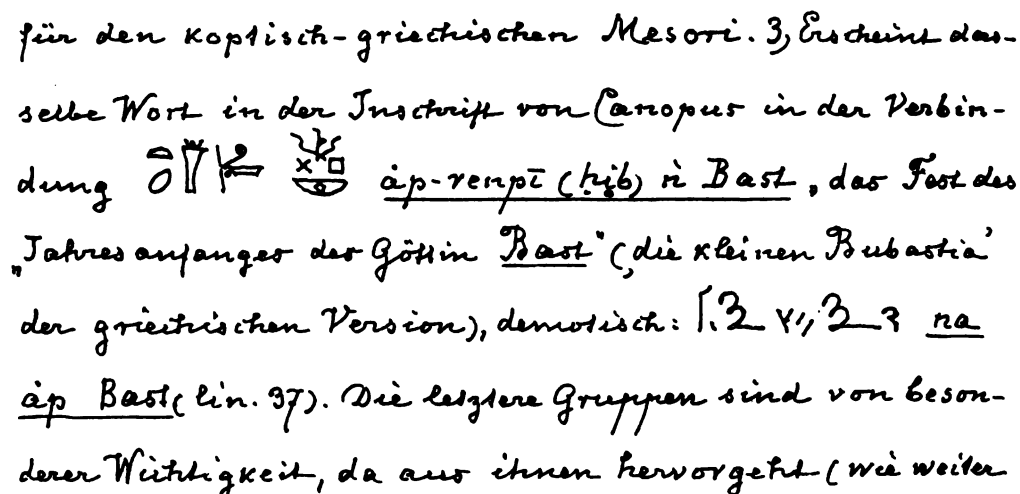 für den koptisch-griechischen Mesori. 3, Erscheint das-
selbe Wort in der Inschrift von Canopus in der Verbin-
dung áp-renpī (ḥib) ṅ Bast, „das Fest des
„Jahresanfanges der Göttin Bast" (‚die kleinen Bubastia'
der griechischen Version), demotisch: na
áp Bast (lin. 37). Die letztere Gruppen sind von beson-
derer Wichtigkeit, da aus ihnen hervorgeht (wie weiter